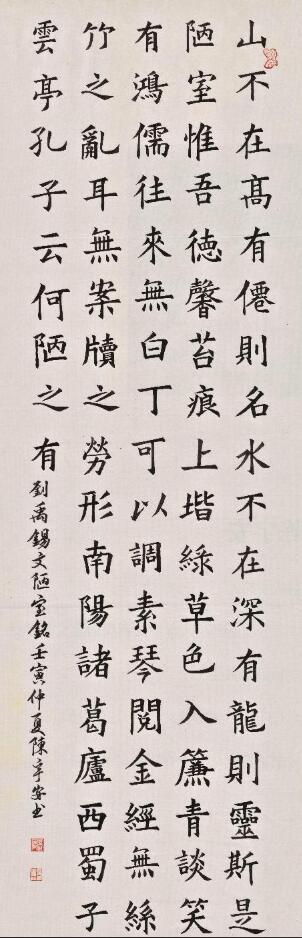 山不在髙有僊則名水不在深有龍則靈斯是
陋室惟吾徳馨苔痕上堦綠草色入簾青談笑
有鴻儒往來無白丁可以調素琴閱金經無絲
竹之亂耳無案牘之勞形南陽諸葛廬西蜀子
雲亭孔子云何陋之有
劉禹錫文陋室銘壬寅仲夏陳安书